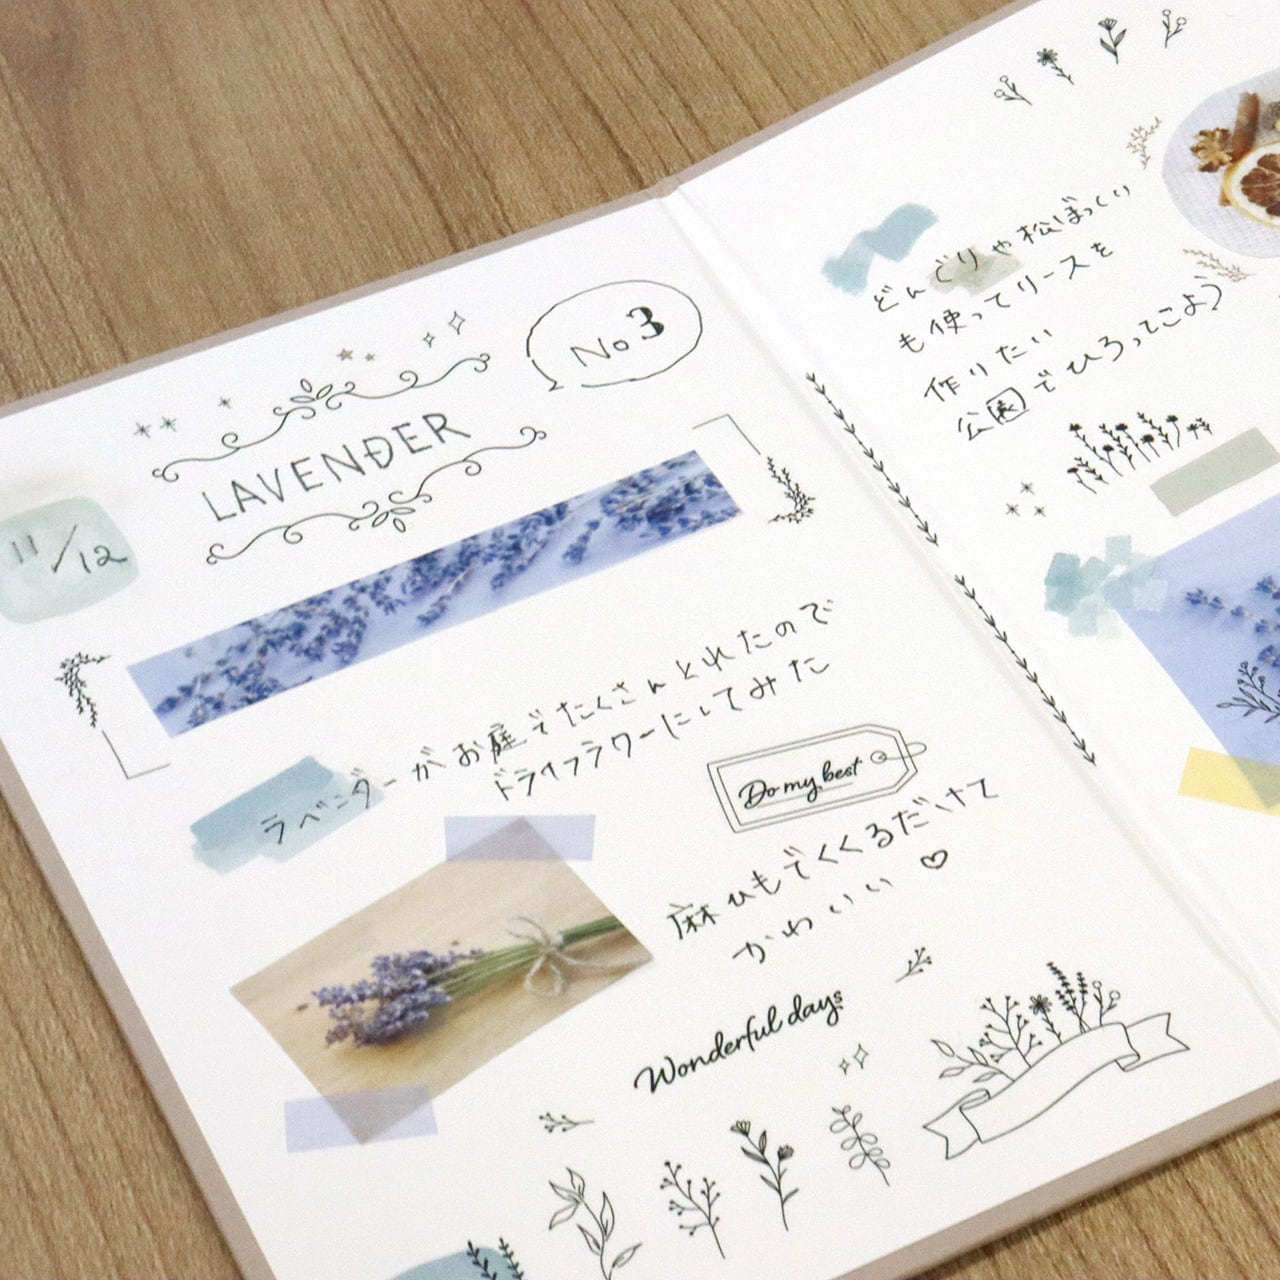 No 3
LAVENDER
11/12
ラベンダーがお庭でたくさんとれたので
ドライフラワーにしてみた
Do my best
麻ひもでくくるだけて
かわいい♡
Wonderful days
どんぐりや松ぼっくり
も使ってリースを
作りたい
公園でひろってこよう